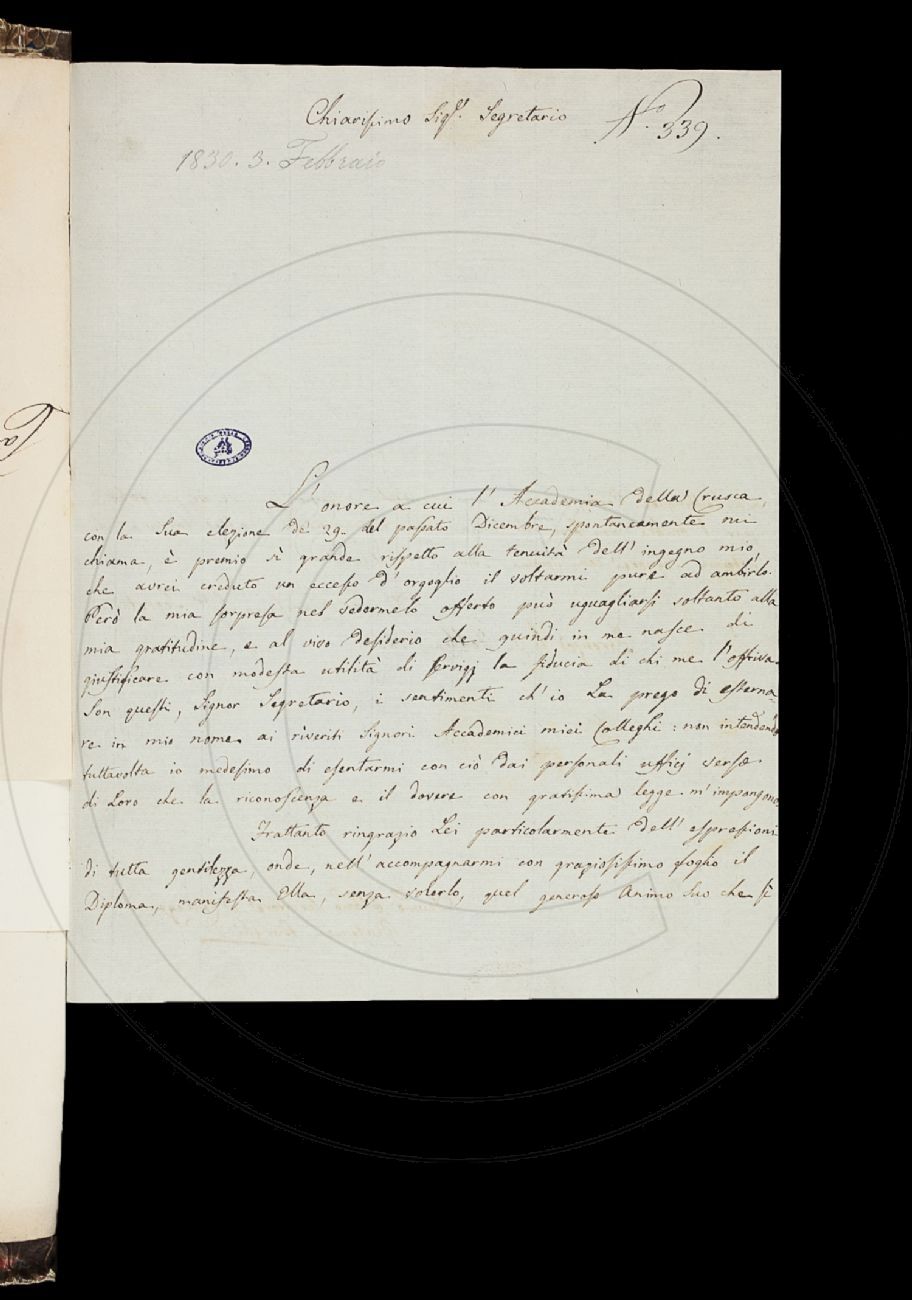 Chiarissimo Sigr. Segretario
N.o 339.
1830. 3. Febbraio
L'onore a cui l'Accademia della Crusca,
con la Sua elezione de' 29. del passato Dicembre, spontaneamente mi
chiama, è premio sì grande rispetto alla tenuità dell'ingegno mio,
che avrei creduto un eccesso d'orgoglio il voltarmi pure ad ambirlo.
Però la mia sorpresa nel vedermelo offerto può uguagliarsi soltanto alla
mia gratitudine, e al vivo desiderio che quindi in me nasce di
giustificare con modesta utilità di servigj la fiducia di chi me l'offriva.
Son questi, Signor Segretario, i sentimenti ch'io La prego di esterna-
re in mio nome ai riveriti Signori Accademici miei Colleghi: non intendendo
tuttavolta io medesimo di esentarmi con ciò dai personali ufficj verso
di Loro che la riconoscenza e il dovere con gratissima legge m'impongono.
Trattanto ringrazio Lei particolarmente dell'espressioni
di tutta gentilezza, onde, nell'accompagnarmi con graziosissimo foglio il
Diploma, manifesta Ella, senza volerlo, quel generoso Animo Suo che sì